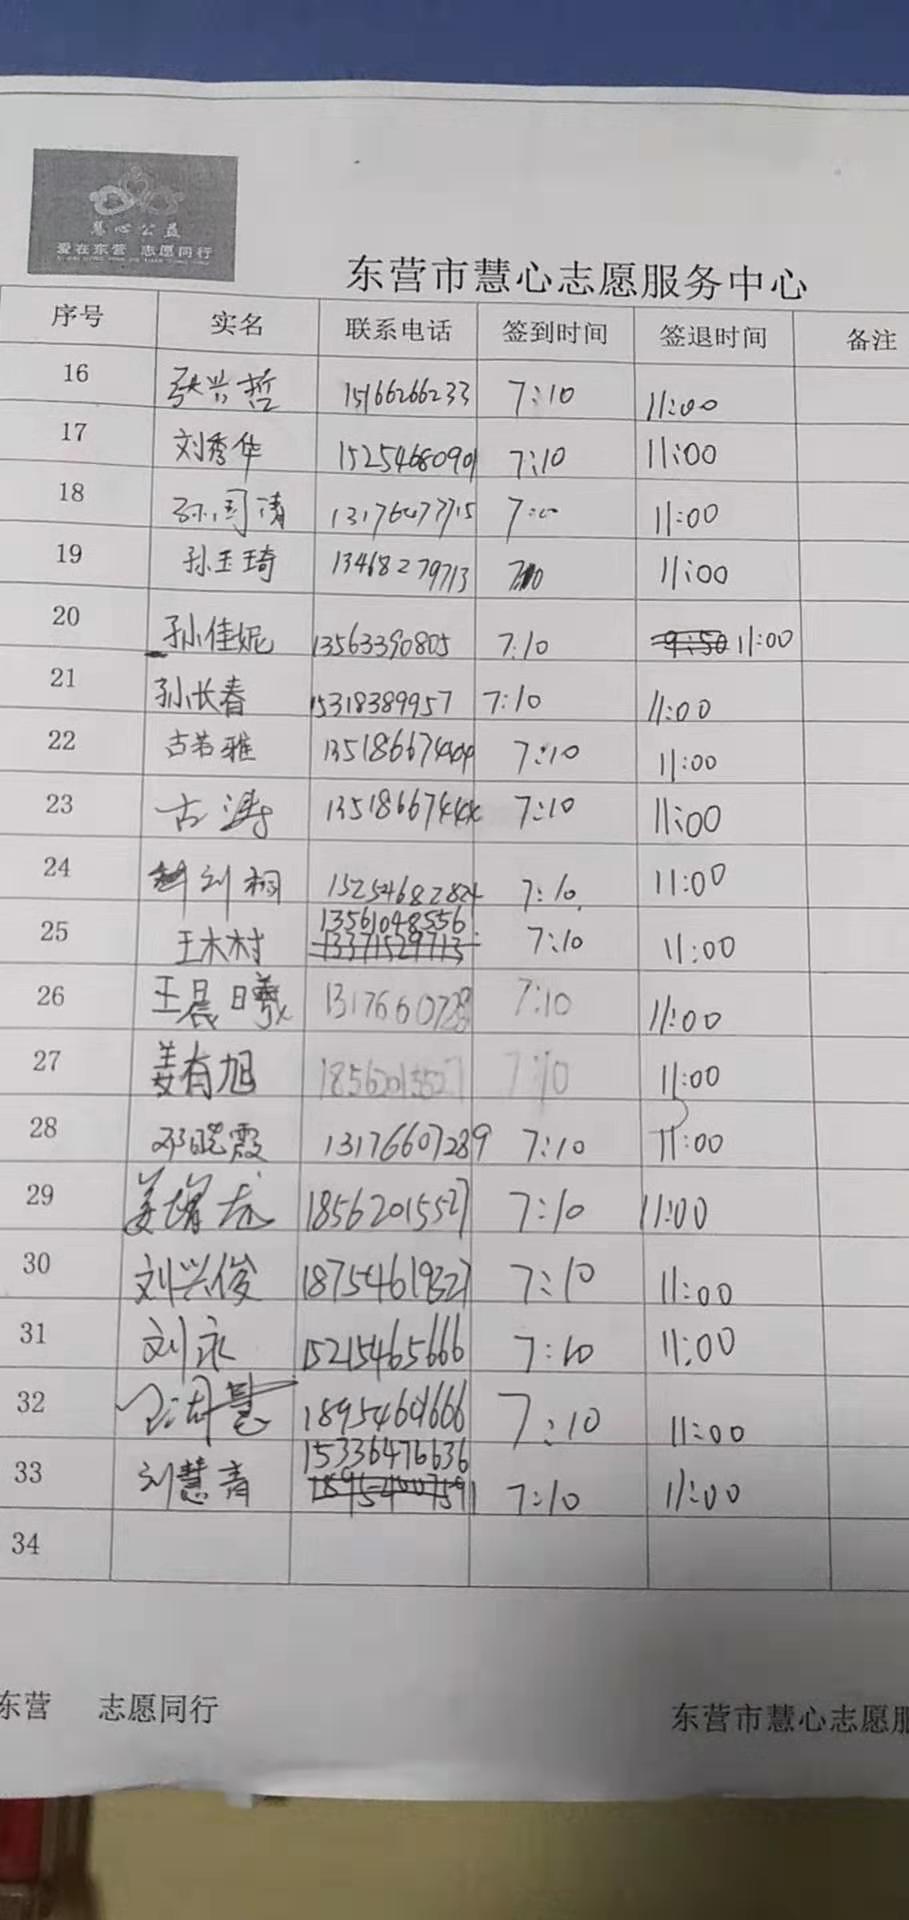 慧心公益
爱在东营 志愿同行
东营市慧心志愿服务中心
序号 实名 联系电话 签到时间 签退时间 备注
16 张兴哲 15166266233 7:10 11:00
17 刘秀华 15254680901 7:10 11:00
18 11:00
19 孙玉琦 13468279713 11:00
20 孙佳妮 13563390805 7:10 9:50 11:00
21 孙长春 15318389957 7:10 11:00
22 古若雅 7:10 11:00
23 古涛 7:10 11:00
24 刘桐 15254682824 7:10 11:00
13561048556
25 王木村 13371529713 7:10 11:00
26 王晨曦 1317660728 7:10 11:00
27 姜有旭 18562015527 7:10 11:00
28 邓晓霞 13176607289 7:10 11:00
29 姜增龙 18562015527 7:10 11:00
30 刘兴俊 7:10 11:00
31 刘永 15215465666 7:10 11:00
32 18954601666 7:10 11:00
15336476636
33 刘慧青 7:10 11:00
34
东营 志愿同行
东营市慧心志愿服